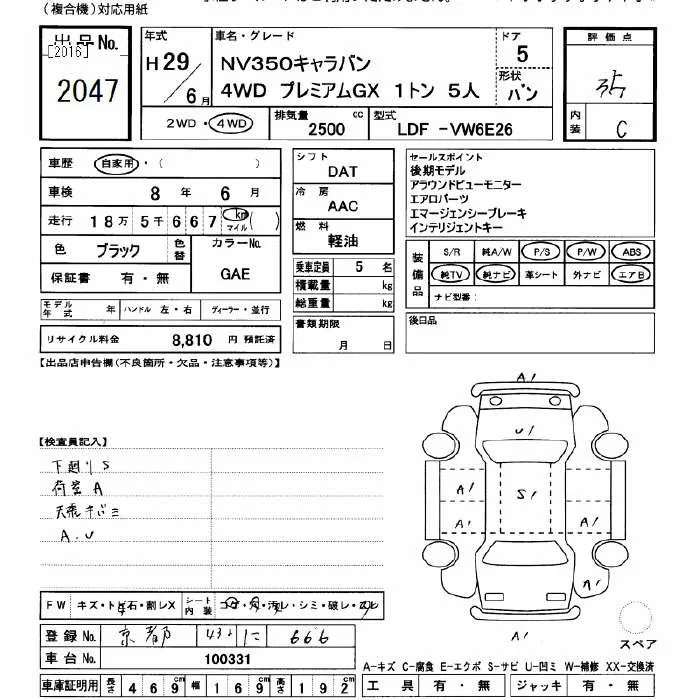 (複合機)対応用紙
出品No.
[2016]
2047
年式
H29/6月
車名・グレード
NV350キャラバン
4WD プレミアムGX 1トン 5人
ドア
5
形状
バン
2WD・4WD
排気量 2500 cc
型式 LDF -VW6E26
評価点
内装 C
車歴 自家用・( )
車検 8年 6月
走行 18万5千667 km マイル ( )
色 ブラック 色替
カラーNo.
GAE
保証書 有・無
モデル年式 年 ハンドル 左・右 ディーラー・並行
リサイクル料金 8,810 円 預託済
シフト
DAT
冷房
AAC
燃料
軽油
乗車定員 5 名
積載量 kg
総重量 kg
書類期限
月 日
セールスポイント
後期モデル
アラウンドビューモニター
エアロパーツ
エマージェンシーブレーキ
インテリジェントキー
装備品
S/R 純A/W P/S P/W ABS
純TV 純ナビ 革シート 外ナビ エアB
ナビ型番:
後日品
【出品店申告欄(不良箇所・欠品・注意事項等)】
【検査員記入】
下廻りS
荷室A
天張キバミ
A.U
A1
U1
A1
S1
A1
A1
A1
A1
スペア
FW キズ・ト石・割レX
シート内装 コゲ・穴・汚レ・シミ・破レ・スレ
登録No. 京都 に 666
車台No. 100331
車庫証明用 長さ 469cm 幅 169cm 高さ 192cm
A-キズ C-腐食 E-エクボ S-サビ U-凹ミ W-補修 XX-交換済
工具 有・無 ジャッキ 有・無